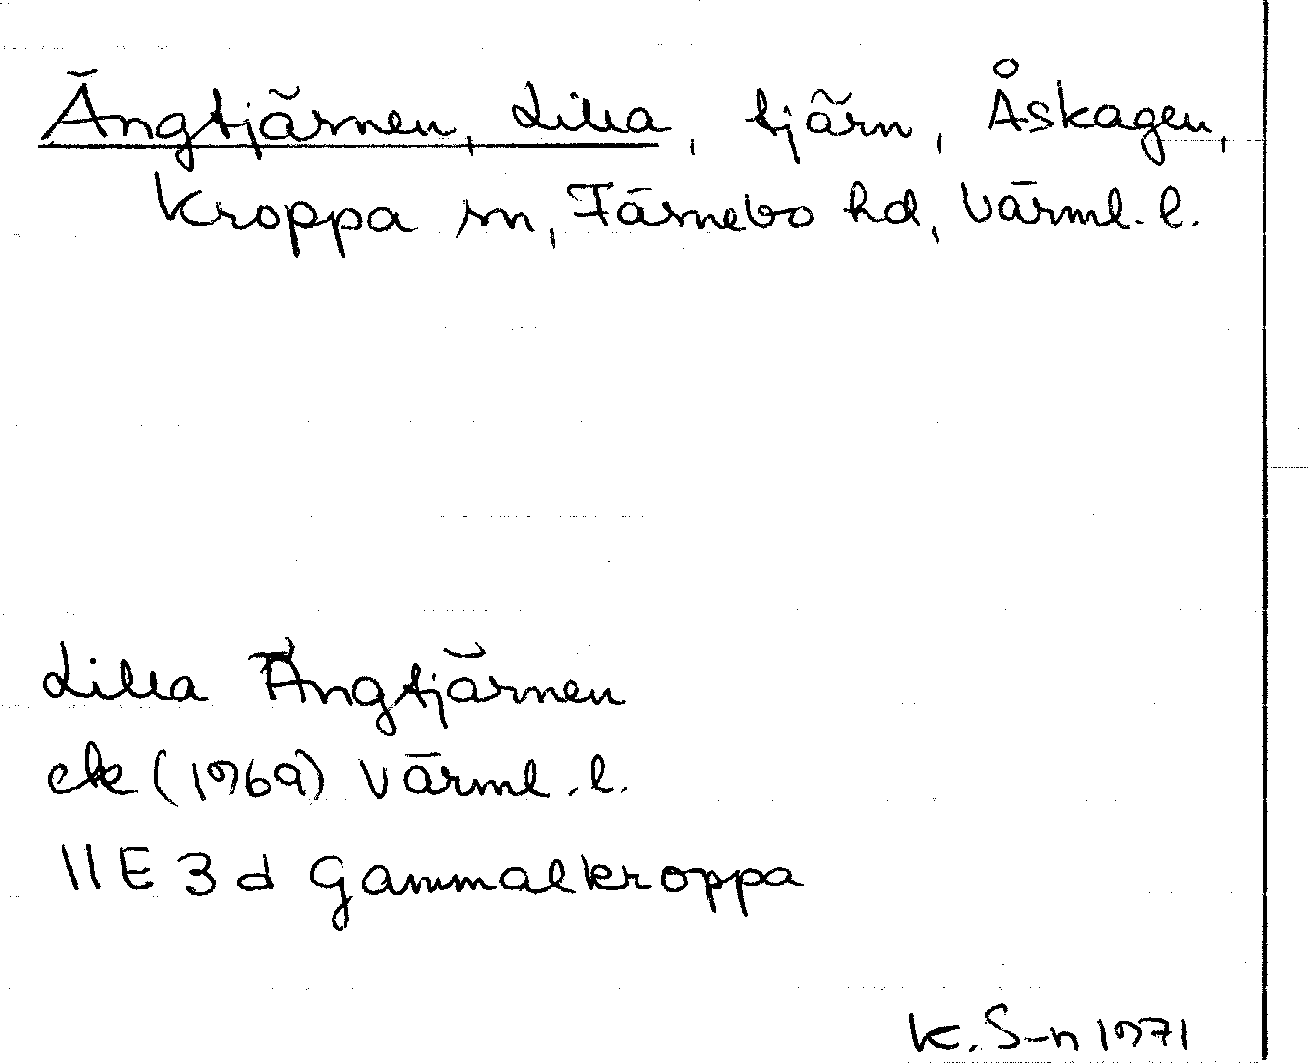 Ängtjärnen, Lilla, tjärn, Åskagen,
Kroppa sn, Färnebo hd, Värml. l.
Lilla Ängtjärnen
ek (1969) Värml. l.
11E 3d Gammalkroppa
K. S-n 1971